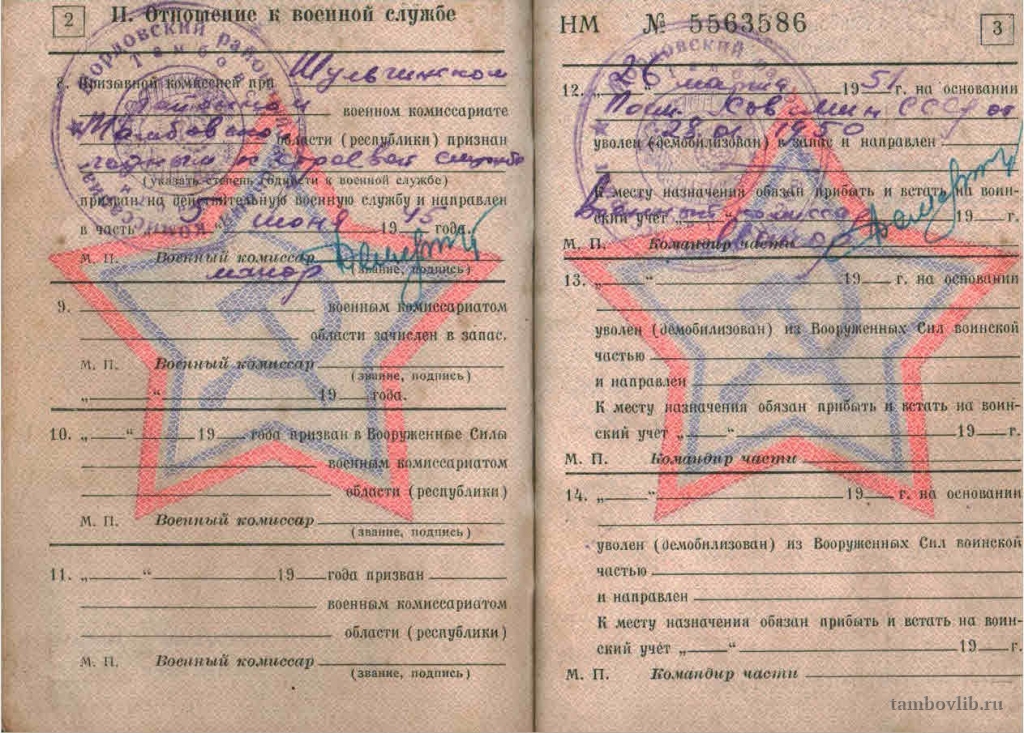 2
II. Отношение к военной службе
8. Призывной комиссией при
районном военном комиссариате
Тамбовской области (республики) признан
годным к строевой службе
(указать степень годности к военной службе)
призван на действительную военную службу и направлен
в часть „5“ июня 1945 года.
М. П. Военный комиссар
майор (звание, подпись)
9. военным комиссариатом
области зачислен в запас.
М. П. Военный комиссар
(звание, подпись)
„ “ 19 года.
10. „ “ 19 года призван в Вооруженные Силы
военным комиссариатом
области (республики)
М. П. Военный комиссар
(звание, подпись)
11. „ “ 19 года призван
военным комиссариатом
области (республики)
М. П. Военный комиссар
(звание, подпись)
НМ № 5563586
3
12. марта 1951 г. на основании
Сов. Мин СССР от
1950
уволен (демобилизован) в запас и направлен
К месту назначения обязан прибыть и встать на воин-
ский учет „ “ 19 г.
М. П. Командир части майор
13. „ “ 19 г. на основании
уволен (демобилизован) из Вооруженных Сил воинской
частью
и направлен
К месту назначения обязан прибыть и встать на воин-
ский учет „ “ 19 г.
М. П. Командир части
14. „ “ 19 г. на основании
уволен (демобилизован) из Вооруженных Сил воинской
частью
и направлен
К месту назначения обязан прибыть и встать на воин-
ский учет „ “ 19 г.
М. П. Командир части
tambovlib.ru